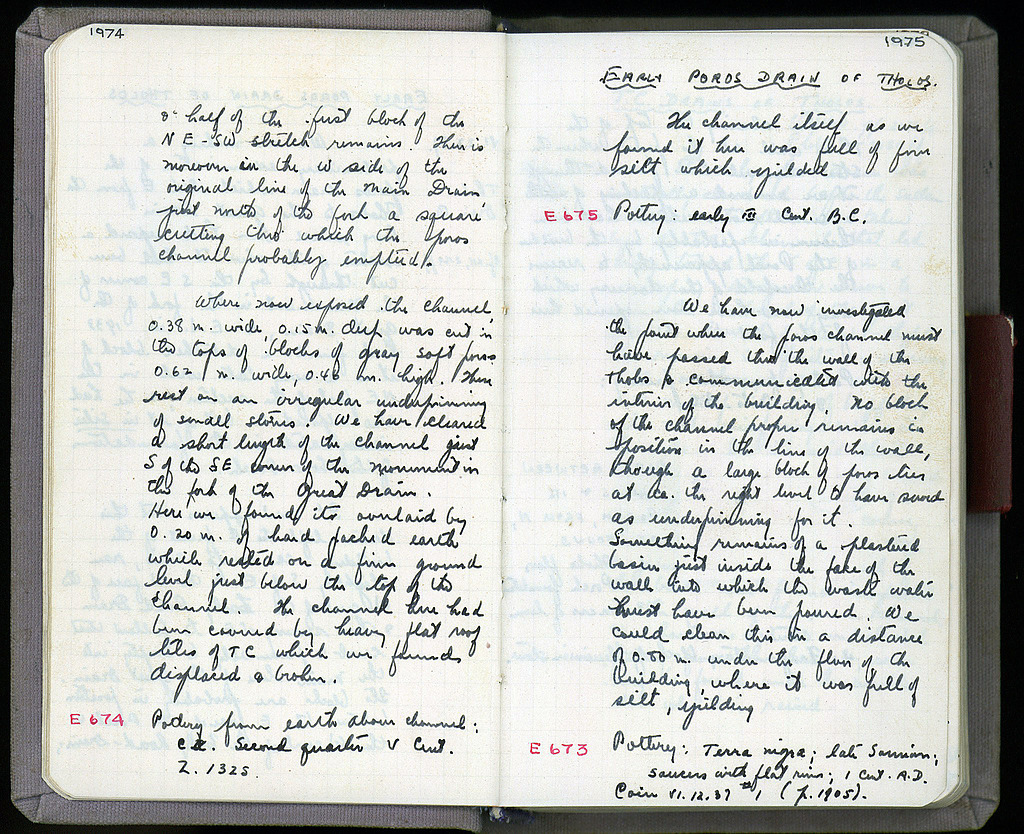 1974
half of the first block of the
NE-SW stretch remains. There is
moreover in the W side of the
original line of the Main Drain,
just north of the fork a square
cutting thro which the poros
channel probably emptied.
Where now exposed the channel,
0.38 m. wide, 0.15 m. deep was cut in
the tops of blocks of gray soft poros
0.62 m. wide, 0.46 m. high. These
rest on an irregular underpinning
of small stones. We have cleared
a short length of the channel just
S of the SE corner of the monument in
the fork of the Great Drain.
Here we found its overlaid by
0.20 m. of hard packed earth
which rested on a firm ground
level just below the top of the
channel. The channel here had
been covered by heavy flat roof
tiles of TC which we found
displaced & broken.
E 674 Pottery from earth above channel:
Second quarter V Cent.
Z. 1325.
1975
EARLY POROS DRAIN OF THOLOS.
The channel itself as we
found it here was full of fine
silt which yielded
E 675 Pottery: early III Cent. B.C.
We have now investigated
the point where the poros channel must
have passed thro the wall of the
Tholos & communicated with the
interior of the building. No block
of the channel proper remains in
position in the line of the wall,
though a large block of poros lies
at ca. the right level to have served
as underpinning for it.
Something remains of a plastered
basin just inside the face of the
wall into which the waste water
must have been poured. We
could clean this in a distance
of 0.80 m. under the floor of the
building, where it was full of
silt, yielding
E 673 Pottery: Terra nigra; late Samian;
saucers with flat rims; I Cent. A.D.
Coin VI.12.37 #1 (p. 1905).